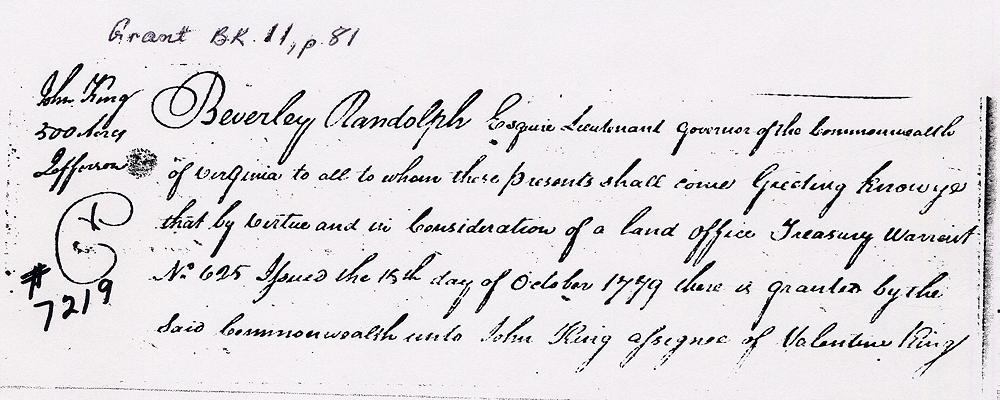 Grant BK. 11, p. 81
John King
500 Acres
Jefferson
Beverley Randolph Esquire Lieutenant Governor of the Commonwealth
of Virginia to all to whom these presents shall come Greeting Know ye
that by Virtue and in Consideration of a land office Treasury Warrant
No. 625 Issued the 15th day of October 1779 there is granted by the
Said Commonwealth unto John King assignee of Valentine King
# 7219